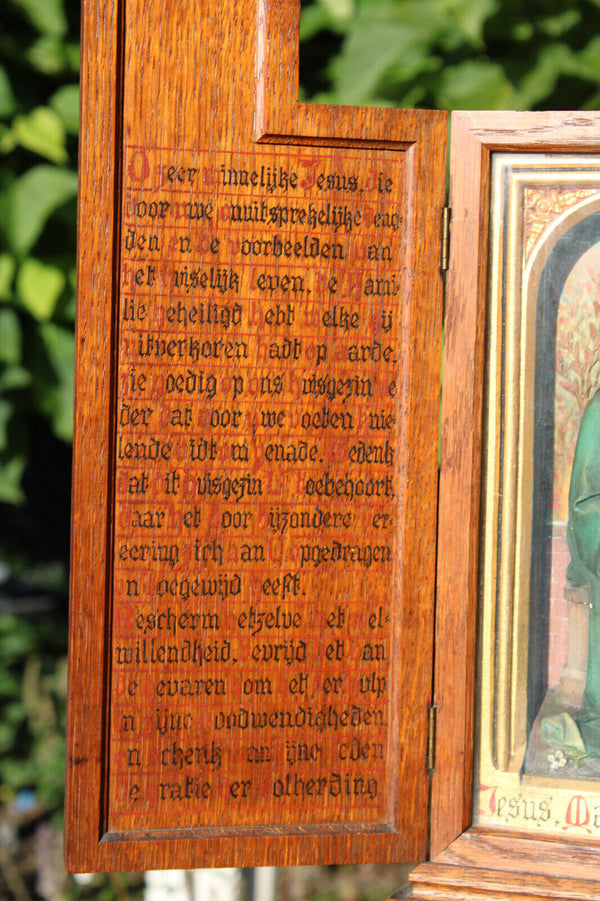 O Zeer minnelijke Jesus, die
door uwe onuitsprekelijke deug-
den en de voorbeelden van
het huiselijk leven, de Fami-
lie geheiligd hebt welke Gij
uitverkoren hadt op aarde,
zie goedig op ons huisgezin ne
der dat voor uwe voeten knie-
lende bidt om genade. Gedenk
dat dit huisgezin U toebehoort,
daar het door bijzondere ver-
eering zich aan U opgedragen
en toegewijd heeft.
Bescherm hetzelve met wel-
willendheid, bevrijd het van
de gevaren kom het ter hulp
in zijne noodwendigheden
en schenk aan zijne leden
de gratie der volherding
Jesus, Ma